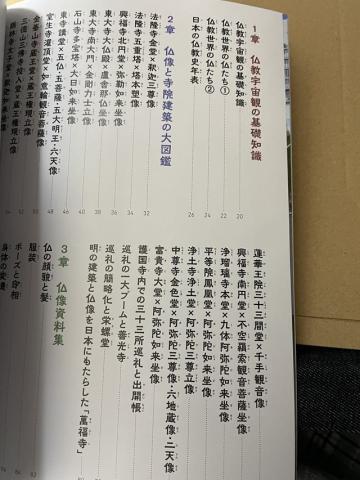 1章 仏教宇宙観の基礎知識
仏教宇宙観の基礎知識 20
仏教世界の仏たち① 22
仏教世界の仏たち② 24
日本の仏教史年表 26
2章 仏像と寺院建築の大図鑑
法隆寺金堂×釈迦三尊像 32
法隆寺五重塔×塔本塑像 34
興福寺北円堂×弥勒如来坐像 36
東大寺大仏殿×盧舎那仏坐像 38
東大寺南大門×金剛力士立像 40
石山寺多宝塔×大日如来坐像 46
東寺講堂×五仏・五菩薩・五大明王・六天像 48
室生寺灌頂堂×如意輪観音菩薩像 50
金峯山寺蔵王堂×蔵王権現立像 52
三徳山三佛寺投入堂×蔵王権現立像 54
鶴林寺太子堂×釈迦如来坐像
蓮華王院三十三間堂×千手観音像
興福寺南円堂×不空羂索観音菩薩坐像
浄瑠璃寺本堂×九体阿弥陀如来坐像
平等院鳳凰堂×阿弥陀如来坐像
浄土寺浄土堂×阿弥陀三尊立像
中尊寺金色堂×阿弥陀三尊像・六地蔵像・二天像
富貴寺大堂×阿弥陀如来坐像
護国寺内での三十三所巡礼と出開帳
巡礼の一大ブームと善光寺
巡礼の簡略化と栄螺堂
明の建築と仏像を日本にもたらした「萬福寺」
3章 仏像資料集
仏の顔貌と髪
服装
ポーズと印相
身体の変遷